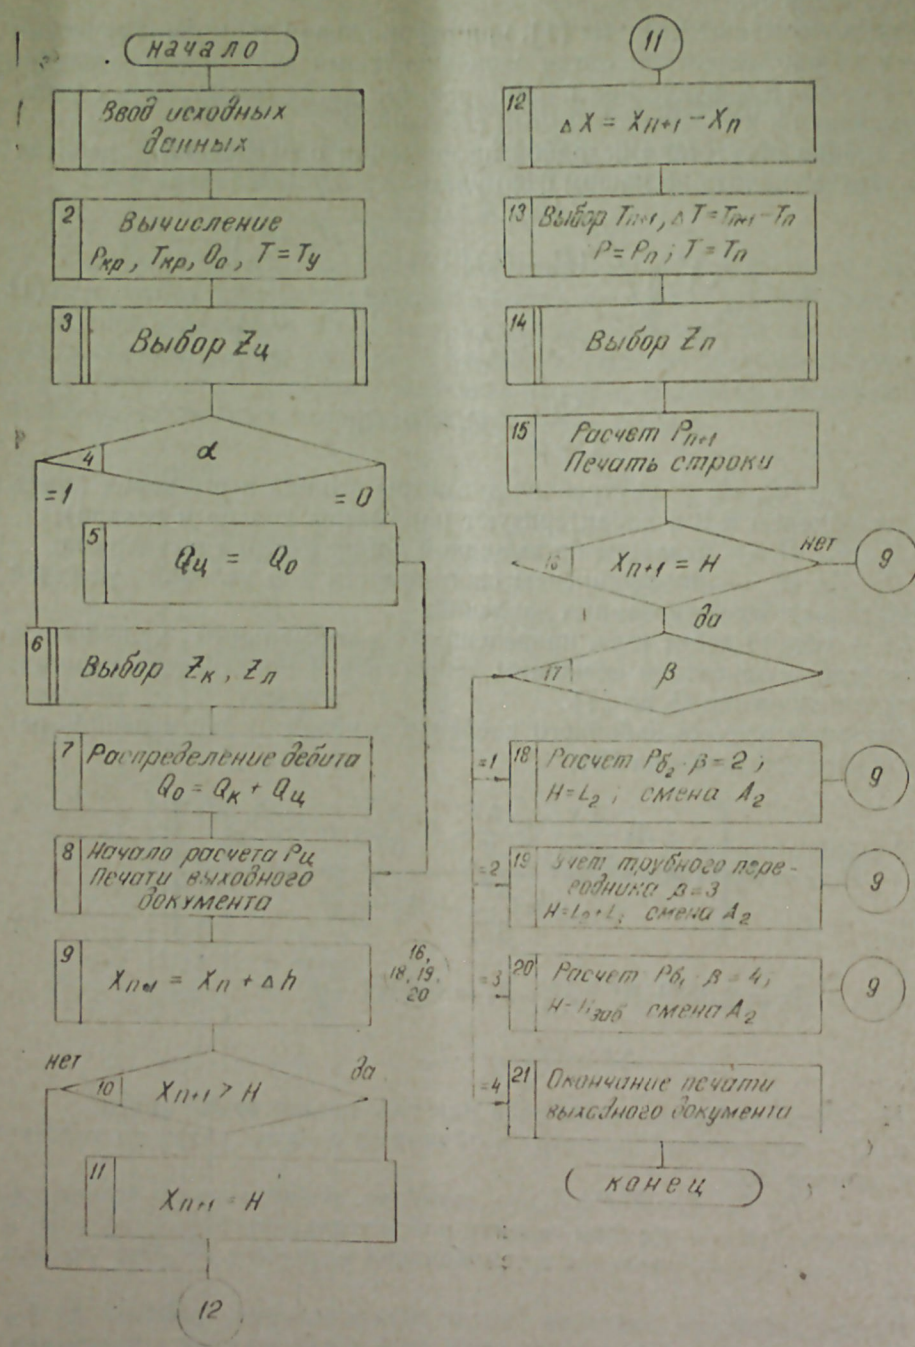 начало
Ввод исходных
данных
2
Вычисление
Pкр, Tкр, Q₀, T = Tу
3
Выбор Zц
4
α
=1
=0
5
Qц = Q₀
6
Выбор Zк, Zл
7
Распределение дебита
Q₀ = Qк + Qц
8
Начало расчета Pц
Печати выходного
документа
9
Xn+1 = Xn + Δh
16,
18, 19,
20
нет
да
10
Xn+1 > H
11
Xn+1 = H
12
11
12
ΔX = Xn+1 − Xn
13
Выбор Tn+1, ΔT = Tn+1 − Tn
P = Pn; T = Tn
14
Выбор Zn
15
Расчет Pn+1
Печать строки
16
Xn+1 = H
нет
9
да
17
β
=1
18
Расчет Pб₂ · β = 2;
H = L₂; смена A₂
9
=2
19
Учет трубного пере-
водника β = 3
смена A₂
9
=3
20
Расчет Pб₁ · β = 4;
H = Hзаб смена A₂
9
=4
21
Окончание печати
выходного документа
конец